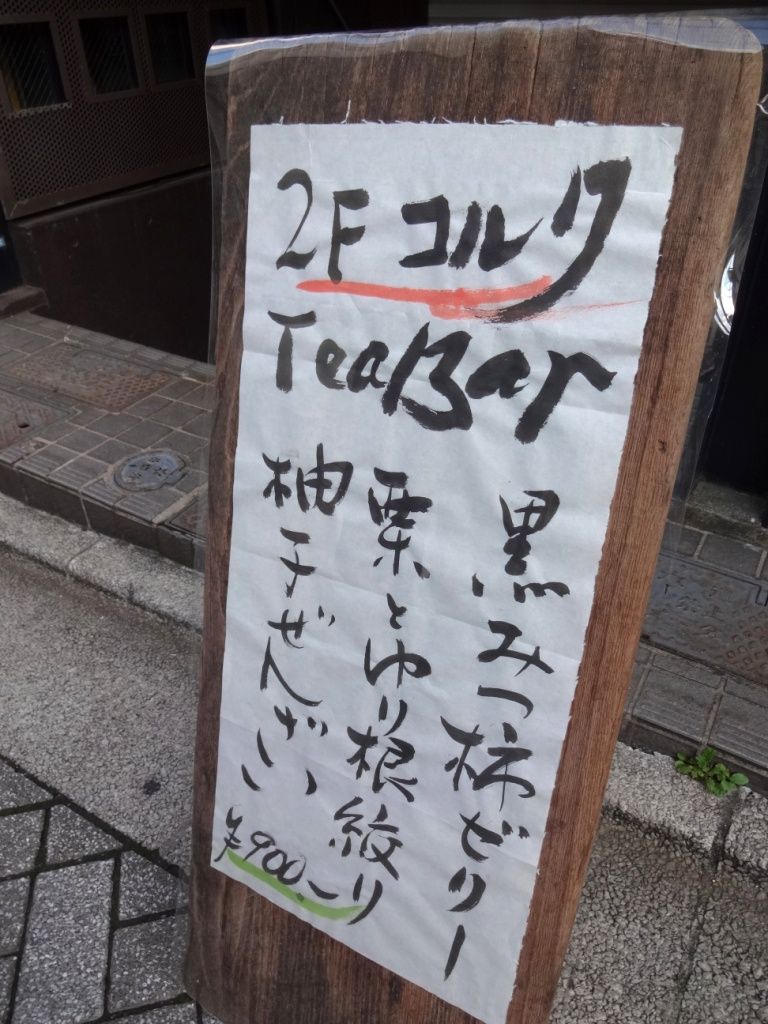 2F コルク
TeaBar
黒みつ柿ゼリー
栗とゆり根絞り
柚子ぜんざい
¥900.-